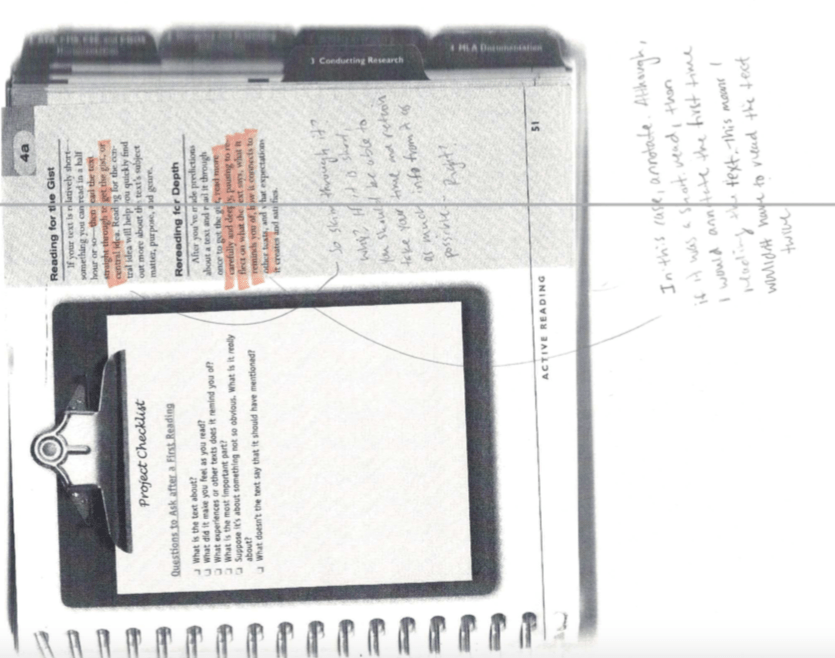 3 Conducting Research
4 MLA Documentation
4a
Reading for the Gist
If your text is relatively short—
something you can read in a half
hour or so—then read the text
straight through to get the gist, or
central idea. Reading for the cen-
tral idea will help you quickly find
out more about the text's subject
matter, purpose, and genre.
Rereading for Depth
After you've made predictions
about a text and read it through
once to get the gist, read more
carefully and deeply, pausing to re-
flect on what the text says, what it
reminds you of, how it connects to
other texts, and what expectations
it creates and satisfies.
So skim through it?
Why? If it is short,
you should be able to
take your time and retain
as much info from it as
possible - Right?
Project Checklist
Questions to Ask after a First Reading
What is the text about?
What did it make you feel as you read?
What experiences or other texts does it remind you of?
What is the most important part?
Suppose it's about something not so obvious. What is it really
about?
What doesn't the text say that it should have mentioned?
ACTIVE READING
51
In this case, annotate. Although,
if it was a short read, than
I would annotate the first time
reading the text. this means I
wouldnt have to read the text
twice